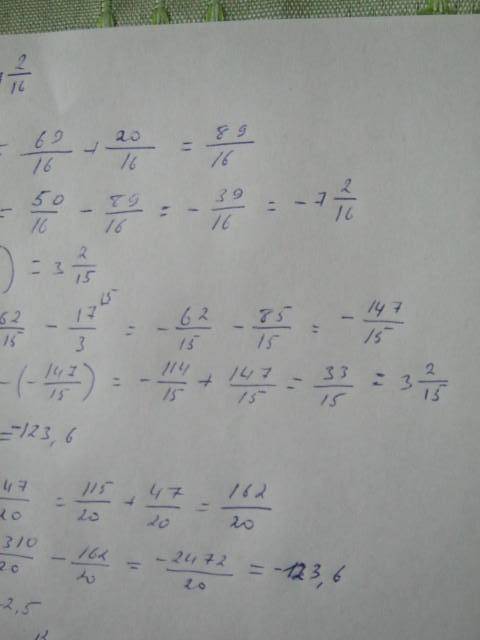 2/16
= 69/16 + 20/16 = 89/16
= 50/16 - 89/16 = - 39/16 = - 7 2/16
) = 3 2/15
62/15 - 17/3 15 = - 62/15 - 85/15 = - 147/15
- (- 147/15) = - 114/15 + 147/15 = 33/15 = 3 2/15
= -123,6
47/20 = 115/20 + 47/20 = 162/20
310/20 - 162/20 = -2472/20 = -123,6
-2,5